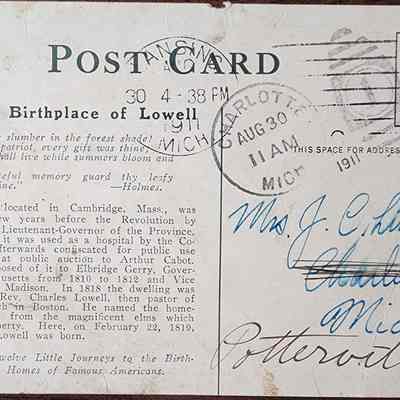 POST CARD
LANSING
AUG
30 4-38 PM
1911
MICH
CHARLOTTE
AUG 30
11 AM
MICH
1911
Birthplace of Lowell
slumber in the forest shade!
patriot, every gift was thine;
all live while summers bloom and
eful memory guard thy leafy
ine."  —Holmes.
located in Cambridge, Mass., was
ew years before the Revolution by
Lieutenant-Governor of the Province.
it was used as a hospital by the Co-
fterwards confiscated for public use
at public auction to Arthur Cabot.
posed of it to Elbridge Gerry, Gover-
usetts from 1810 to 1812 and Vice
Madison. In 1818 the dwelling was
Rev. Charles Lowell, then pastor of
ch in Boston. He named the home-
from the magnificent elms which
perty. Here, on February 22, 1819,
Lowell was born.
welve Little Journeys to the Birth-
Homes of Famous Americans.
THIS SPACE FOR ADDRES
Mrs. J. C.
Charl
Mic
Pottervil